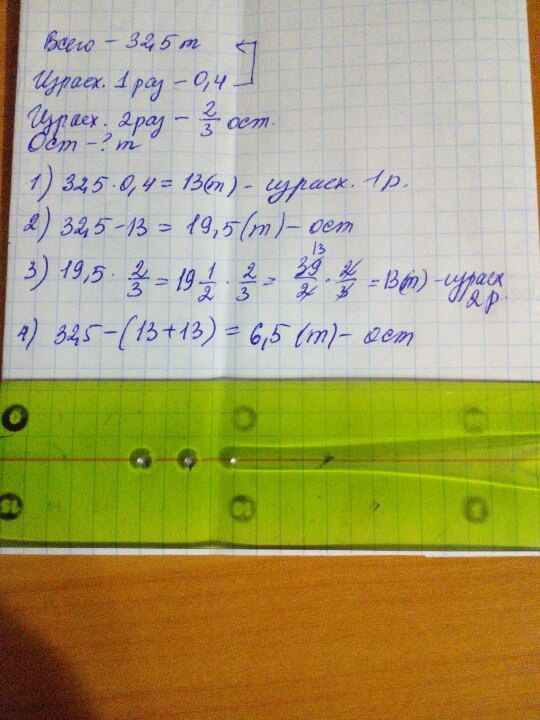 Всего – 32,5 т
Израсх. 1 раз – 0,4
Израсх. 2 раз – 2/3 ост.
Ост – ? т
1) 32,5 · 0,4 = 13(т) – израсх. 1 р.
2) 32,5 – 13 = 19,5 (т) – ост
3) 19,5 · 2/3 = 19 1/2 · 2/3 = 39/2 · 2/3 = 13(т) – израсх
13
2 р.
4) 32,5 – (13 + 13) = 6,5 (т) – ост